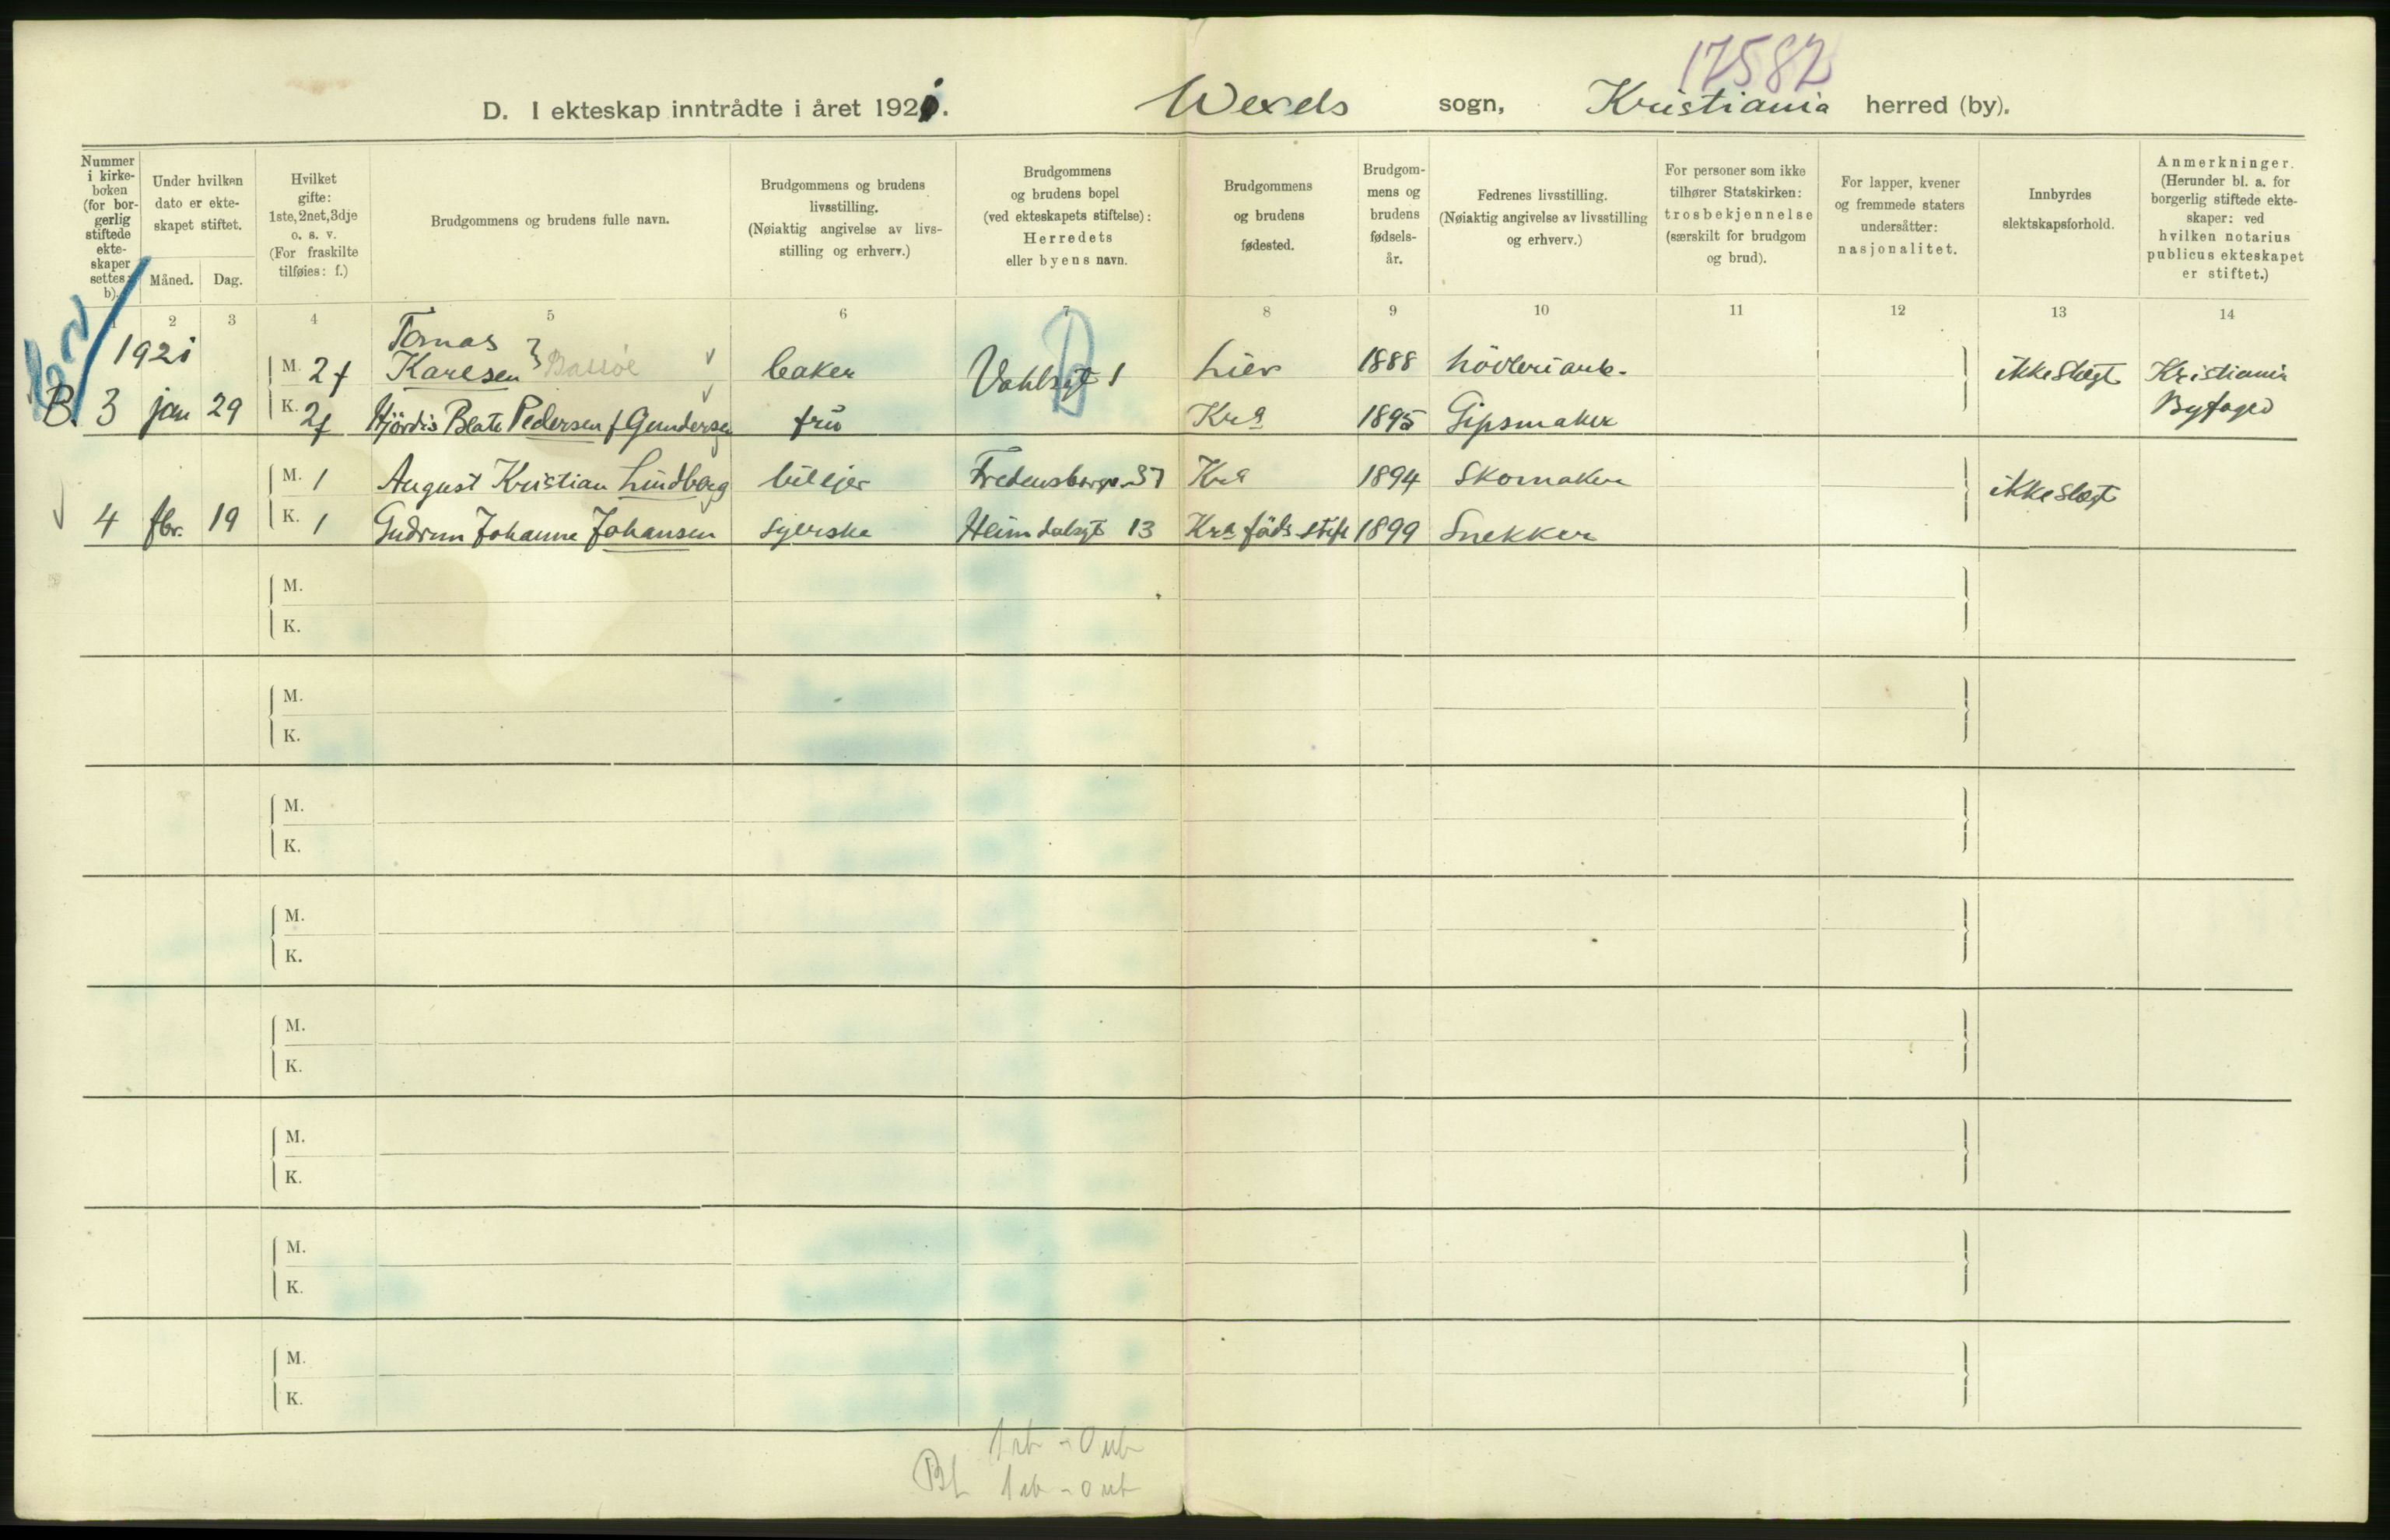 17582
D. I ekteskap inntrådte i året 1921. Wexels sogn, Kristiania herred (by).
Nummer i kirkeboken (for borgerlig stiftede ekteskaper settes: b).
Under hvilken dato er ekteskapet stiftet.
Måned. Dag.
Hvilket gifte: 1ste, 2net, 3dje o. s. v. (For fraskilte tilføies: f.)
Brudgommens og brudens fulle navn.
Brudgommens og brudens livsstilling. (Nøiaktig angivelse av livsstilling og erhverv.)
Brudgommens og brudens bopel (ved ekteskapets stiftelse): Herredets eller byens navn.
Brudgommens og brudens fødested.
Brudgommens og brudens fødselsår.
Fedrenes livsstilling. (Nøiaktig angivelse av livsstilling og erhverv.)
For personer som ikke tilhører Statskirken: trosbekjennelse (særskilt for brudgom og brud).
For lapper, kvener og fremmede staters undersåtter: nasjonalitet.
Innbyrdes slektskapsforhold.
Anmerkninger. (Herunder bl. a. for borgerlig stiftede ekteskaper: ved hvilken notarius publicus ekteskapet er stiftet.)
1 2 3 4 5 6 7 8 9 10 11 12 13 14
1921
M. 2f Tomas Karlsen } Bassøe baker Vahlsgt 1 Lier 1888 høvleriarb. ikke slægt Kristiania
B. 3 jan 29 K. 2f Hjördis Beate Pedersen f Gundersen frü Kra 1895 Gipsmaker Byfoged
M. 1 August Kristian Lindberg bileier Fredensborgv. 37 Kra 1894 Skomaker ikke slægt
4 fbr. 19 K. 1 Gudrun Johanne Johansen syerske Heimdalsgt 13 Kra föds.stift 1899 Snekker
M.
K.
M.
K.
M.
K.
M.
K.
M.
K.
M.
K.
M.
K.
M.
K.